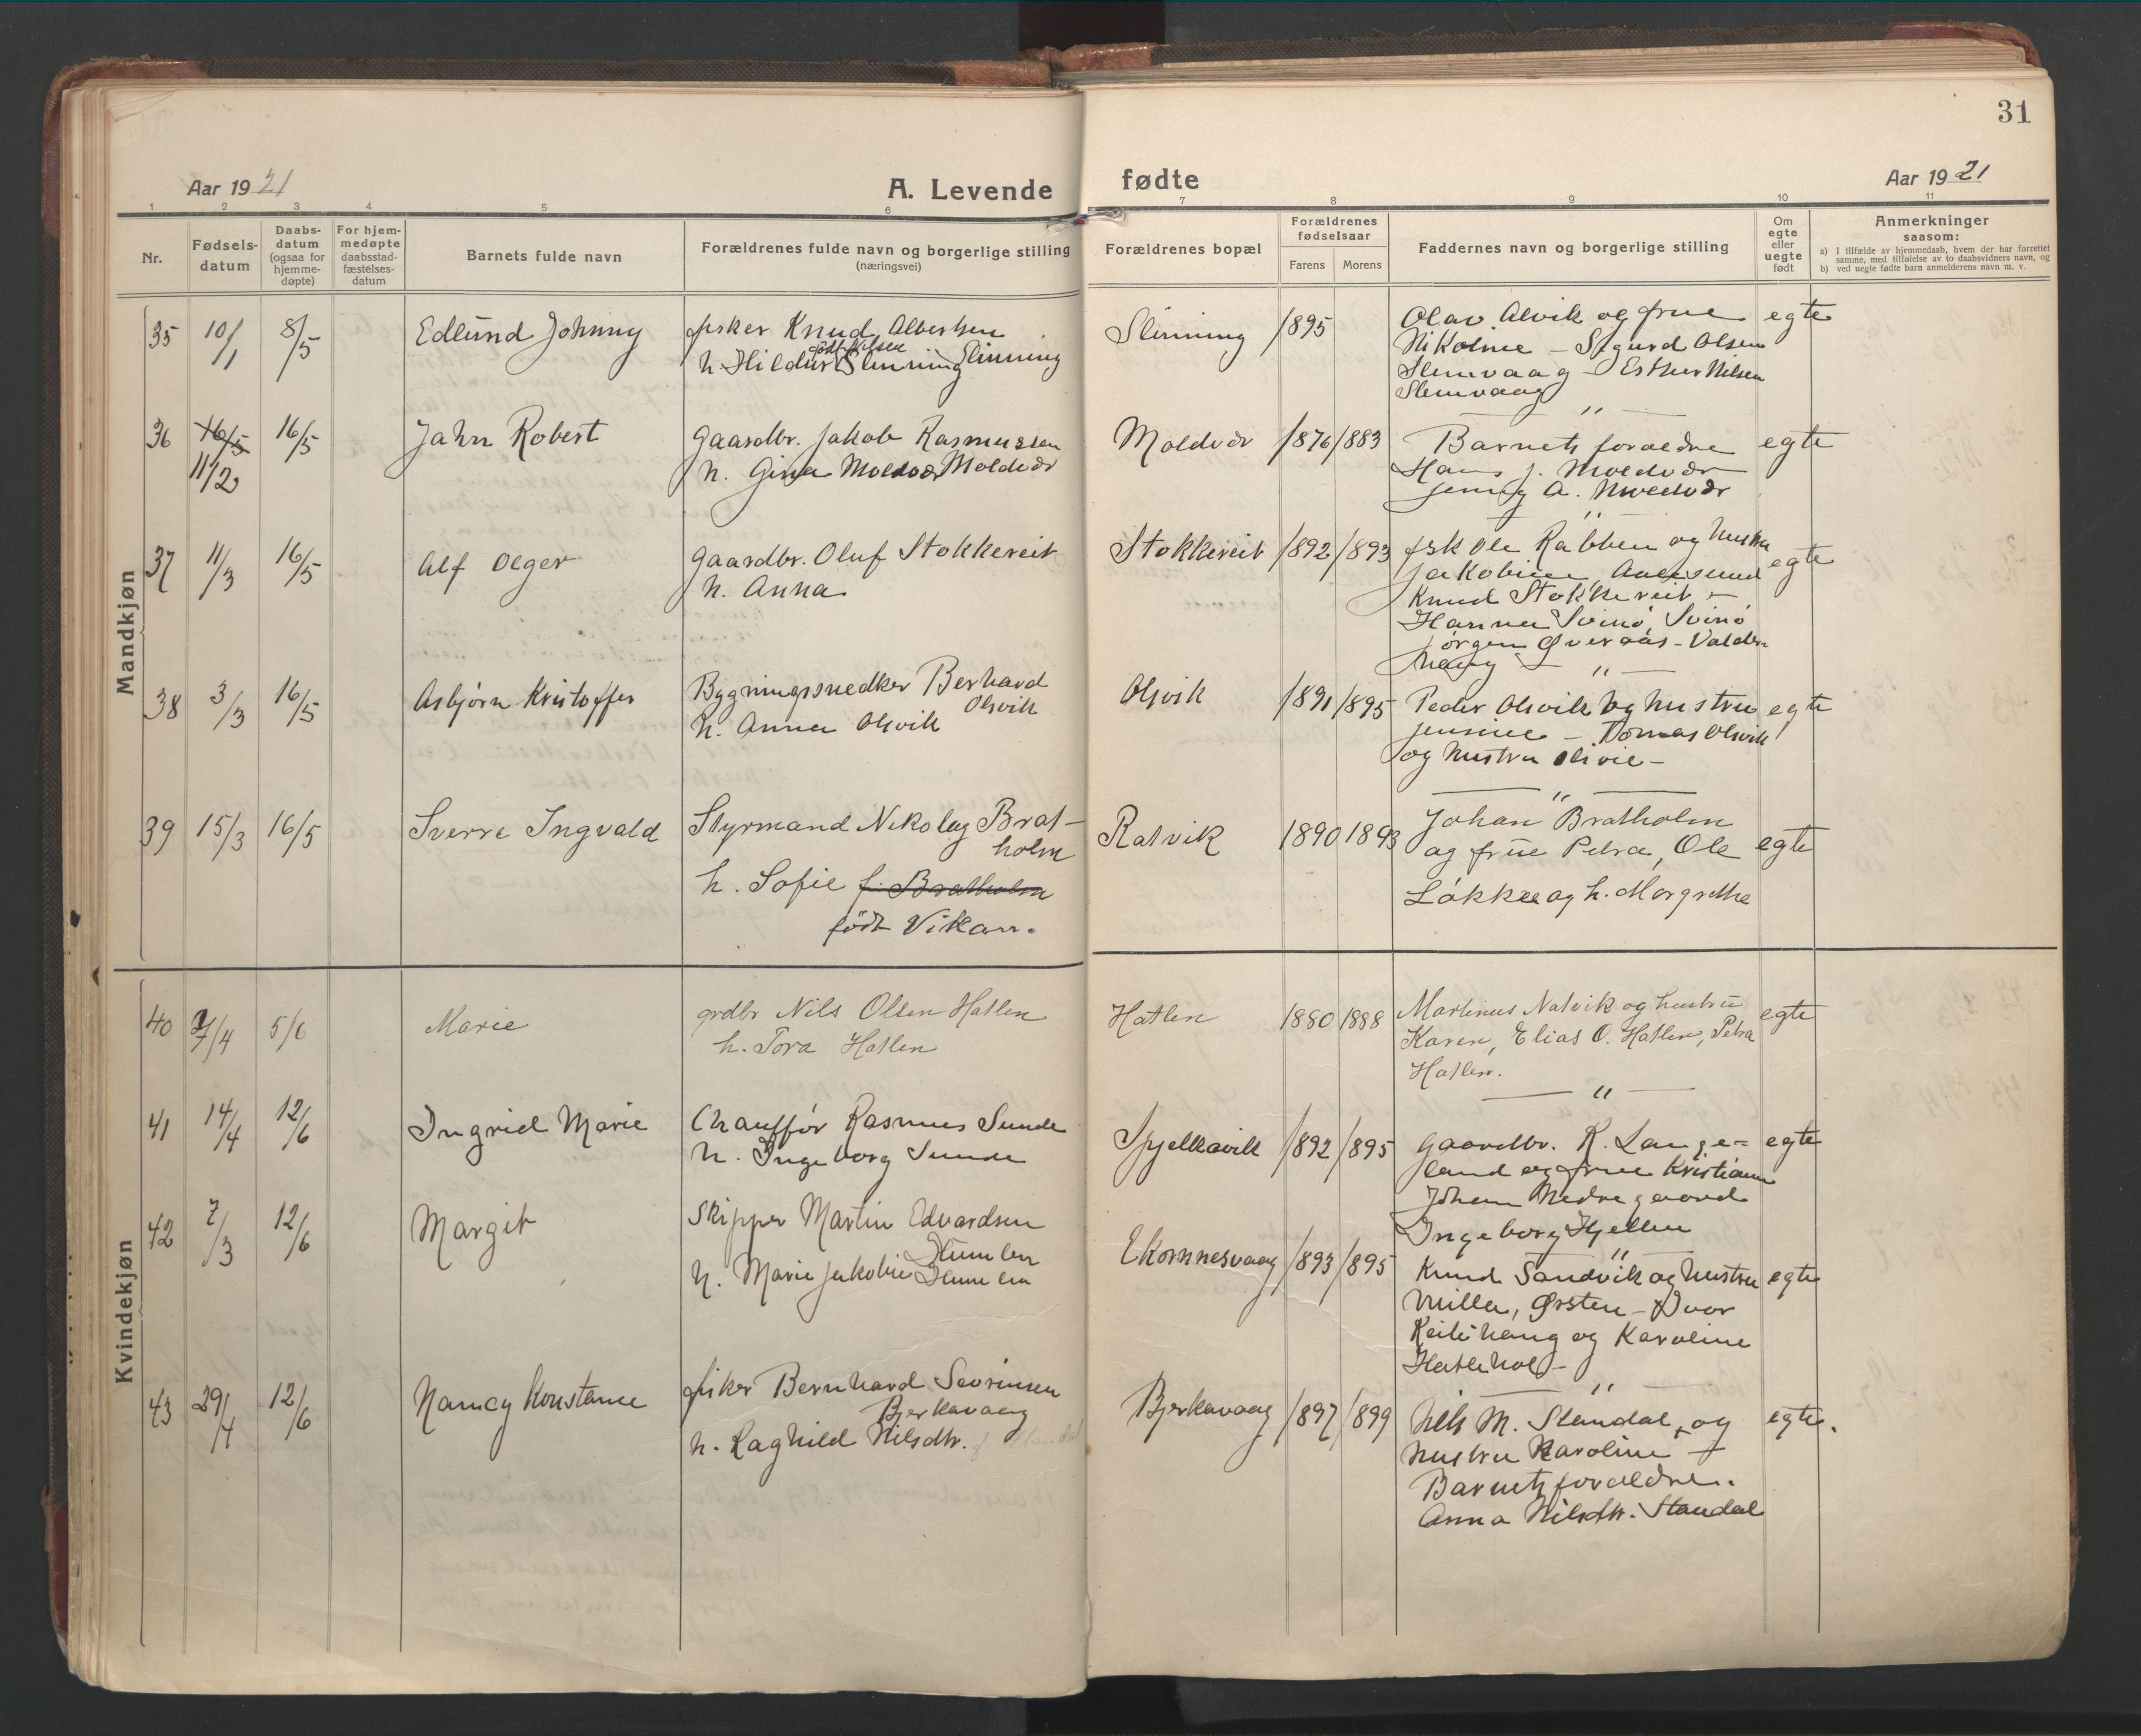 31
Aar 1921
A. Levende
fødte
Aar 1921
1 2 3 4 5 6 7 8 9 10 11
Nr.
Fødsels-
datum
Daabs-
datum
(ogsaa for
hjemme-
døpte)
For hjem-
medøpte
daabsstad-
fæstelses-
datum
Barnets fulde navn
Forældrenes fulde navn og borgerlige stilling
(næringsvei)
Forældrenes bopæl
Forældrenes
fødselsaar
Farens Morens
Faddernes navn og borgerlige stilling
Om
egte
eller
uegte
født
Anmerkninger
saasom:
a) I tilfælde av hjemmedaab, hvem der har forrettet
samme, med tilføielse av to daabsvidners navn, og
b) ved uegte fødte barn anmelderens navn m. v.
Mandkjøn
35 10/1 8/5 Edlund Johnny
fisker Knud Albertsen
født Nilsen
h. Hildur Slinning Slinning
Slinning 1895
Olav Alvik og frue
Nikoline - Sigurd Olsen
Slemvaag - Esther Nilsen
Slemvaag
egte
36 16/5 11/2 16/5 Jahn Robert
gaardbr. Jakob Rasmussen
h. Gina Moldvær Moldvær
Moldvær 1876 1883
— " —
Barnets foræeldre
Hans J. Moldvær
Jenny A. Moldvær
egte
37 11/3 16/5 Alf Olger
gaardbr. Oluf Stokkereit
h. Anna
Stokkereit 1892 1893
— " —
fsk Ole Rabben og hustru
Jakobine Aalesund
Knud Stokkereit -
Hanna Svinö, Svinö
Jørgen Øveraas - Valder
egte
38 3/3 16/5 Asbjørn Kristoffer
Bygningssnedker Berhard
Olsvik
h. Anna Olsvik
Olsvik 1891 1895
— " —
Peder Olsvik og hustru
Jensine - Tomas Olsvik
og hustru Olivie -
egte
39 15/3 16/5 Sverre Ingvald
Styrmand Nikolay Brat-
holm
h. Sofie f. Bratholm
født Vikan.
Ratvik 1890 1893
— " —
Johan Bratholm
og frue Petra, Ole
Løkkee og h. Margrethe
egte
Kvindekjøn
40 7/4 5/6 Marie
grdbr Nils Olsen Hatlen
h. Tora Hatlen
Hatlen 1880 1888
Martinus Natvik og hustru
Karen, Elias O. Hatlen, Petra
Hatlen.
egte
41 14/4 12/6 Ingrid Marie
Chauffør Rasmus Sunde
h. Ingeborg Sunde
Spjelkavik 1892 1895
— " —
gaardbr. R. Lange-
land og frue Kristianne
Johan Nedregaard
Ingeborg Hjellen
egte
42 7/3 12/6 Margit
Skipper Martin Edvardsen
Humlen
h. Marie Jakobie Humlen
Ekornnesvaag 1893 1895
— " —
Knud Sandvik og hustru
Milla, Ørsten -
og Karoline
Hatlehol -
egte
43 29/4 12/6 Nancy Konstance
fisker Bernhard Sevrinsen
Bjerkavaag
h. Ragnhild Nilsdtr.
Bjerkavaag 1897 1899
— " —
Nils M. Standal og
hustru Karoline
Barnets foræeldre.
Anna Nilsdtr. Standal
egte.